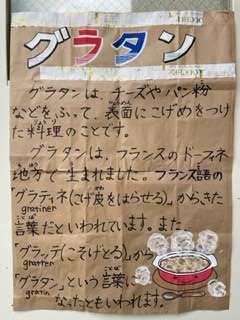 グラタン
グラタンは、チーズやパン粉
などを、ふって、表面にこげめをつけ
た料理のことです。
グラタンは、フランスのドーフネ
地方で生まれました。フランス語の
「グラティネ(こげ皮をはらせる)」からきた
gratiner
言葉だといわれています。また、
「グラッテ(こそげとる)」から
gratter
「グラタン」という言葉に
gratin
なったともいわれます。